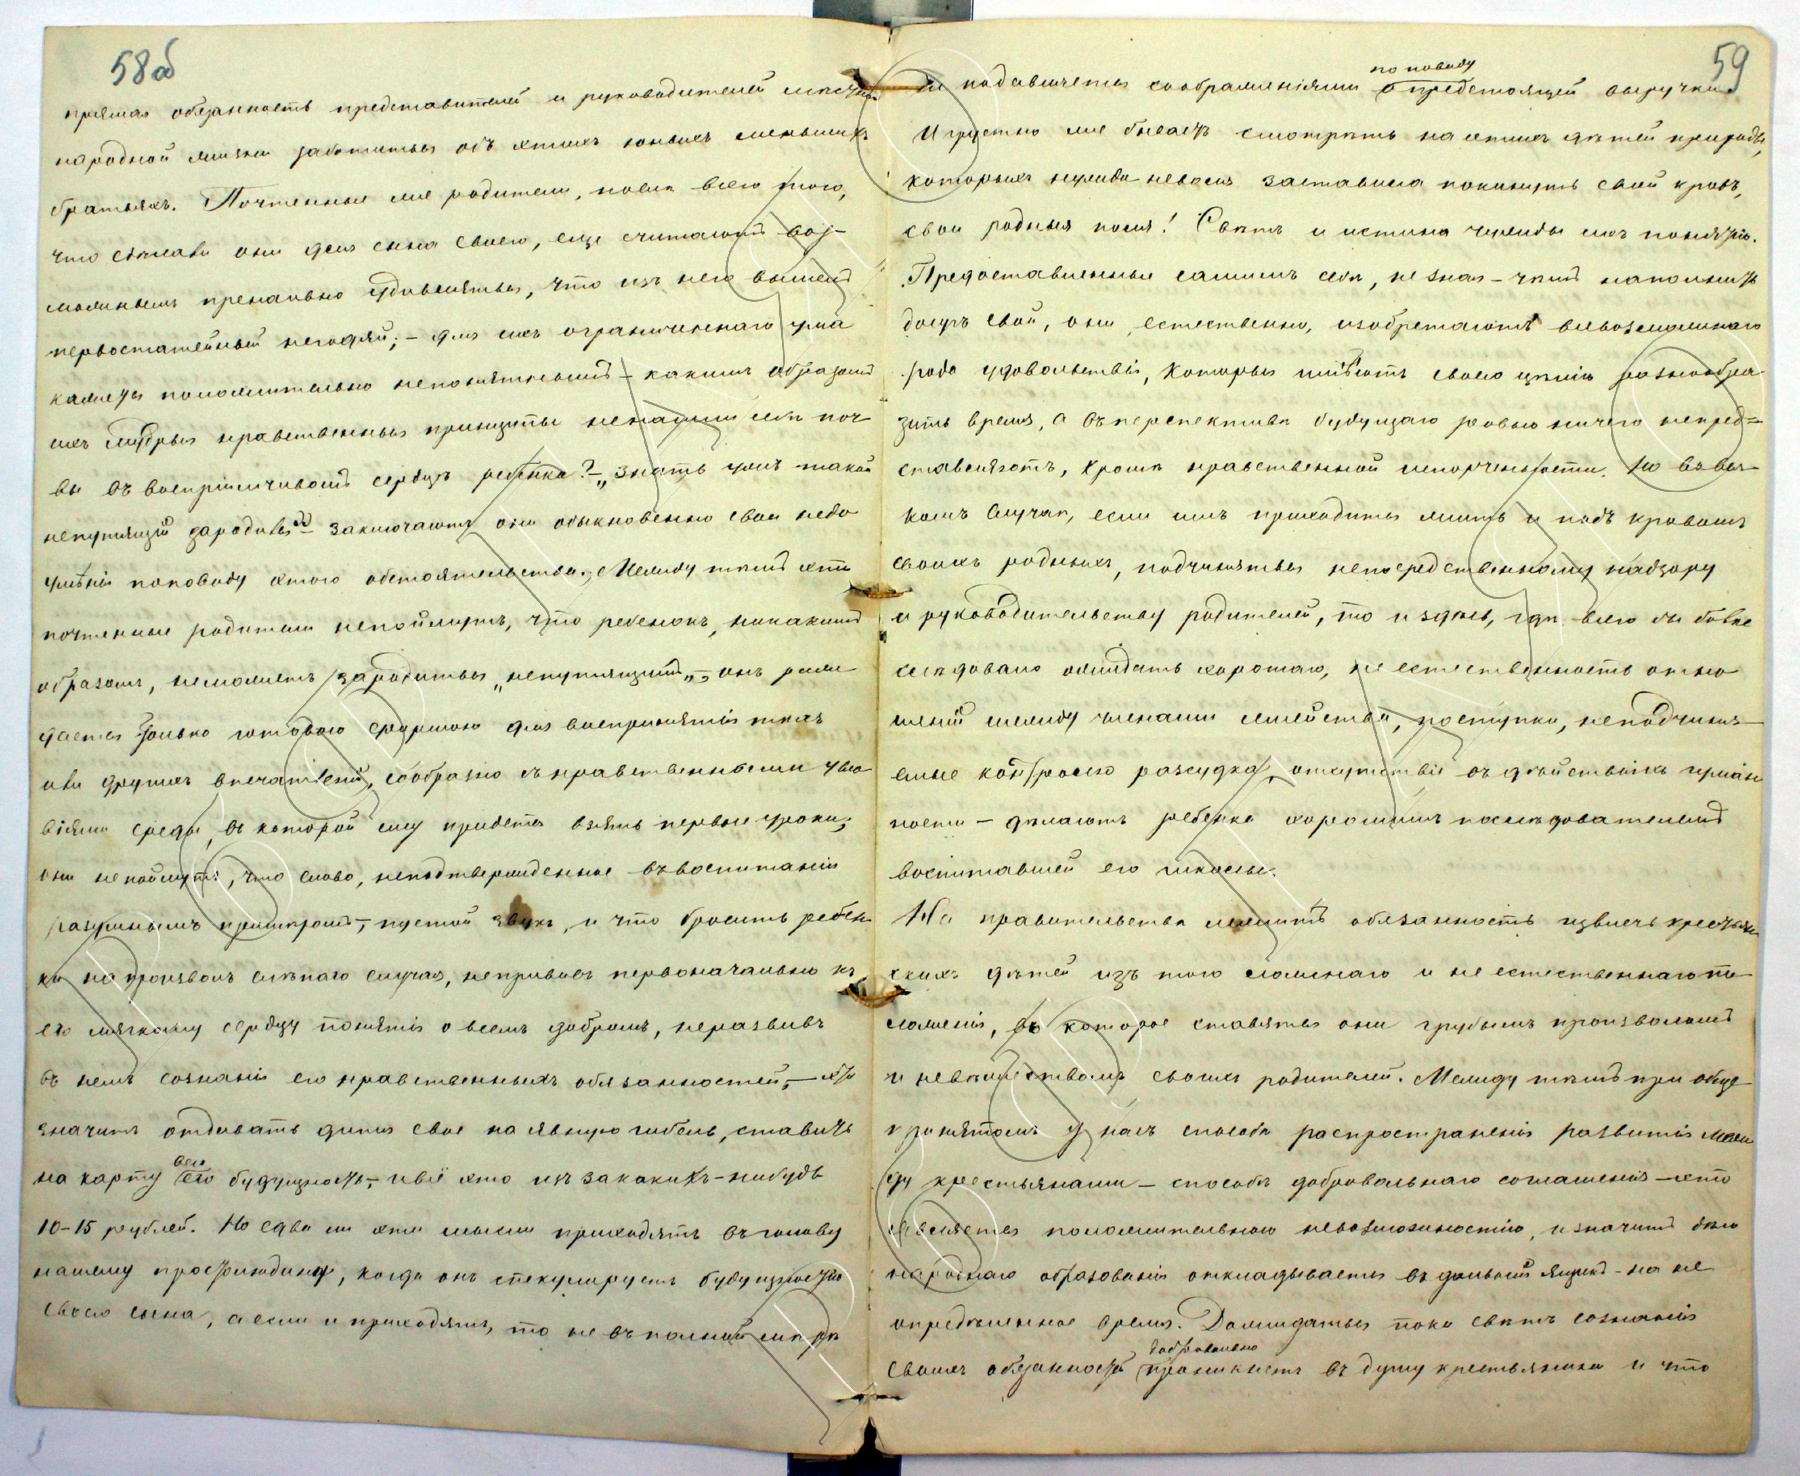 58об
прямая обязанность представителей и руководителей
народной жизни заботиться объ этихъ юныхъ меньшихъ
братьяхъ. Почтенные же родители, после всего того,
что сделали они для сына своего, еще считаютъ воз-
можнымъ пренаивно удивляться, что изъ него вышелъ
первостатейный негодяй; – для ихъ ограниченнаго ума
кажется положительно непонятнымъ – какимъ образомъ
ихъ мудрые нравственные принципы не нашли себе поч-
вы въ восприимчивомъ сердце ребенка? – „знать ужъ такой
непутящій зародився“ – заключаютъ они обыкновенно свои недо
уменія поповоду этого обстоятельства. Между темъ эти
почтенные родители непоймутъ, что ребенокъ, никакимъ
образомъ, неможетъ зародиться „непутящимъ“, – онъ рож
дается только готовою формою для воспринятія техъ
или другихъ впечатленій, сообразно съ нравственными усло
віями среды, въ которой ему придется взять первые уроки;
они непоймутъ, что слово, неподтвержденное въ воспитаніи
разумнымъ примеромъ, – пустой звукъ, и что бросить ребен
ка на произволъ слепаго случая, непрививъ первоначально къ
его мягкому сердцу понятія о всемъ добромъ, неразвивъ
въ немъ сознанія его нравственныхъ обязанностей, – это
значитъ отдавать дитя свое на явную гибель, ставить
на карту всю его будущность, – и всё это изъ за какихъ-нибудь
10-15 рублей. Но едва ли эти мысли приходятъ въ голову
нашему простолюдину, когда онъ спекулируетъ будущностью
своего сына, а если и приходятъ, то не въ полной мере
59
и подавляется соображеніями по поводу о предстоящей выручки
И грустно мне бываетъ смотреть на этихъ детей природы,
которыхъ нужда неволя заставила покинуть свой кровъ,
свои родныя поля! Светъ и истина чужды ихъ понятію.
Предоставленные самимъ себе, не зная – чемъ наполнить
досугъ свой, они, естественно, изобретаютъ всевозможнаго
рода удовольствія, которыя имеютъ своею целію разнообра
зить время, а въ перспективе будущаго ровно ничего непред=
ставляютъ, кроме нравственной испорченности. Но въ та-
комъ случае, если имъ приходится жить и подъ кровомъ
своихъ родныхъ, подчиняться непосредственному надзору
и руководительству родителей, то и здесь, где всего бы более
следовало ожидать хорошаго, не естественность отно
шеній между членами семейства, поступки, неподчиня-
емые контролю разсудка, отсутствіе въ действіяхъ гуман
ности – делаютъ ребенка хорошимъ последователемъ
воспитавшей его школы.
На правительстве лежитъ обязанность извлечь крестьян
скихъ детей изъ того сложнаго и не естественнаго по
ложенія, въ которое ставятся они грубымъ произволомъ
и невежествомъ своихъ родителей. Между темъ при обще-
принятомъ у насъ способе распространенія развитія меж
ду крестьянами – способъ добровольнаго соглашенія – это
является положительною невозможностію, и значитъ дело
народнаго образованія откладывается въ дольный ящикъ – на не
определенное время. Дожидаться пока светъ сознанія
своихъ обязанностей добровольно проникнетъ въ душу крестьянина и что